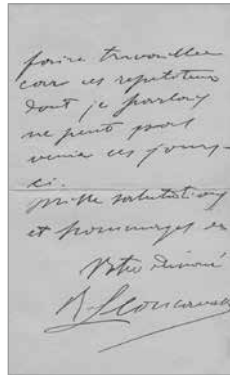 faire travailler
car ces repetiteurs
dont je parlais
ne peut pas
venir ces jours-
ci.
Mille salutations
et hommages de
Votre dévoué
R Leoncavallo